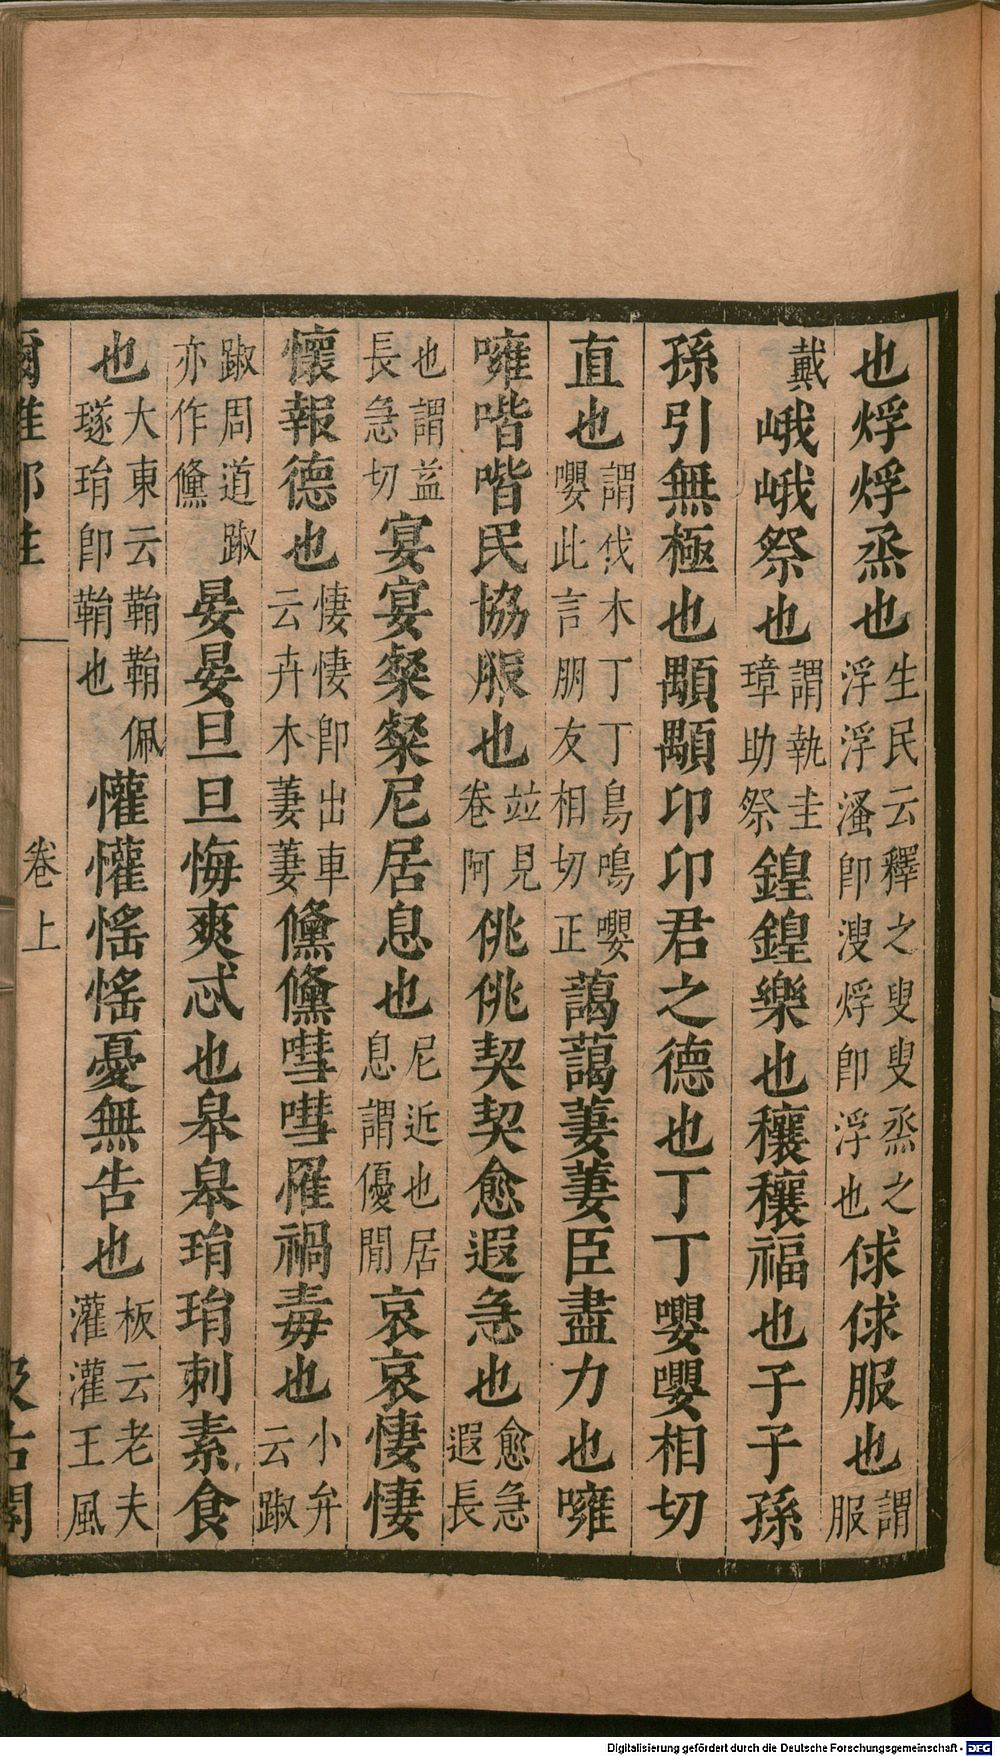 也烰烰烝也生民云釋之叟叟烝之浮浮溞卽溲烰卽浮也俅俅服也謂服
戴峨峨祭也謂執圭璋助祭鍠鍠樂也穰穰福也子子孫
孫引無極也顒顒卬卬君之德也丁丁嚶嚶相切
直也謂伐木丁丁鳥鳴嚶嚶此言朋友相切正藹藹萋萋臣盡力也噰
噰喈喈民協服也竝見卷阿佻佻契契愈遐急也愈急遐長
也謂益長急切宴宴粲粲尼居息也尼近也居息謂優閒哀哀悽悽
懷報德也悽悽卽出車云卉木萋萋儵儵嘒嘒罹禍毒也小弁云踧
踧周道踧亦作儵晏晏旦旦悔爽忒也皋皋琄琄刺素食
也大東云鞙鞙佩璲琄卽鞘也懽懽愮愮憂無告也板云老夫灌灌王風
爾雅鄭註
卷上
汲古閣
Digitalisierung gefördert durch die Deutsche Forschungsgemeinschaft - DFG